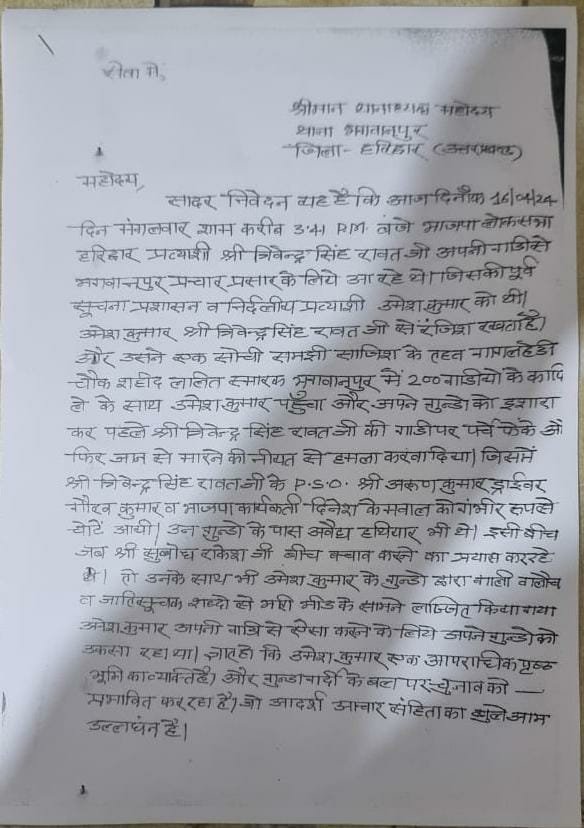 सेवा में,
श्रीमान थानाध्यक्ष महोदय
थाना भगवानपुर
जिला- हरिद्वार (उत्तराखण्ड)
महोदय,
सादर निवेदन यह है कि आज दिनाँक 16/04/24
दिन मंगलवार शाम करीब 3:41 P.M. बजे भाजपा लोकसभा
हरिद्वार प्रत्याशी श्री त्रिवेन्द्र सिंह रावत जी अपनी गाडी से
भगवानपुर प्रचार प्रसार के लिये आ रहे थे। जिसकी पूर्व
सूचना प्रशासन व निर्दलीय प्रत्याशी उमेश कुमार को थी।
उमेश कुमार श्री त्रिवेन्द्र सिंह रावत जी से रंजिश रखता है।
और उसने एक सोची समझी साजिश के तहत मानलहेडी
चौक शहीद ललित स्मारक भगवानपुर में 200 गाडियो के काफि
ले के साथ उमेश कुमार पहुँचा और अपने गुन्डो को इशारा
कर पहले श्री त्रिवेन्द्र सिंह रावत जी की गाडी पर पर्चे फेके औ
फिर जान से मारने की नीयत से हमला करवा दिया। जिसमें
श्री त्रिवेन्द्र सिंह रावत जी के P.S.O. श्री अरूण कुमार ड्राईवर
गौरव कुमार व भाजपा कार्यकर्ता दिनेश केमवाल को गंभीर रूप से
चोटें आयी। उन गुन्डो के पास अवैध हथियार भी थे। इसी बीच
जब श्री सुबोध राकेश जी बीच बचाव करने का प्रयास कर रहे
थे। तो उनके साथ भी उमेश कुमार के गुन्डो द्वारा गाली गलौच
व जातिसूचक शब्दो से भरी भीड के सामने लज्जित किया गया
उमेश कुमार अपनी गाडी से ऐसा करने के लिये अपने गुन्डो को
उकसा रहा था। ज्ञात हो कि उमेश कुमार एक आपराधिक पृष्ठ
भूमि का व्यक्ति है। और गुन्डागर्दी के बल पर चुनाव को
प्रभावित कर रहा है। जो आदर्श आचार संहिता का खुले आम
उल्लाघंन है।